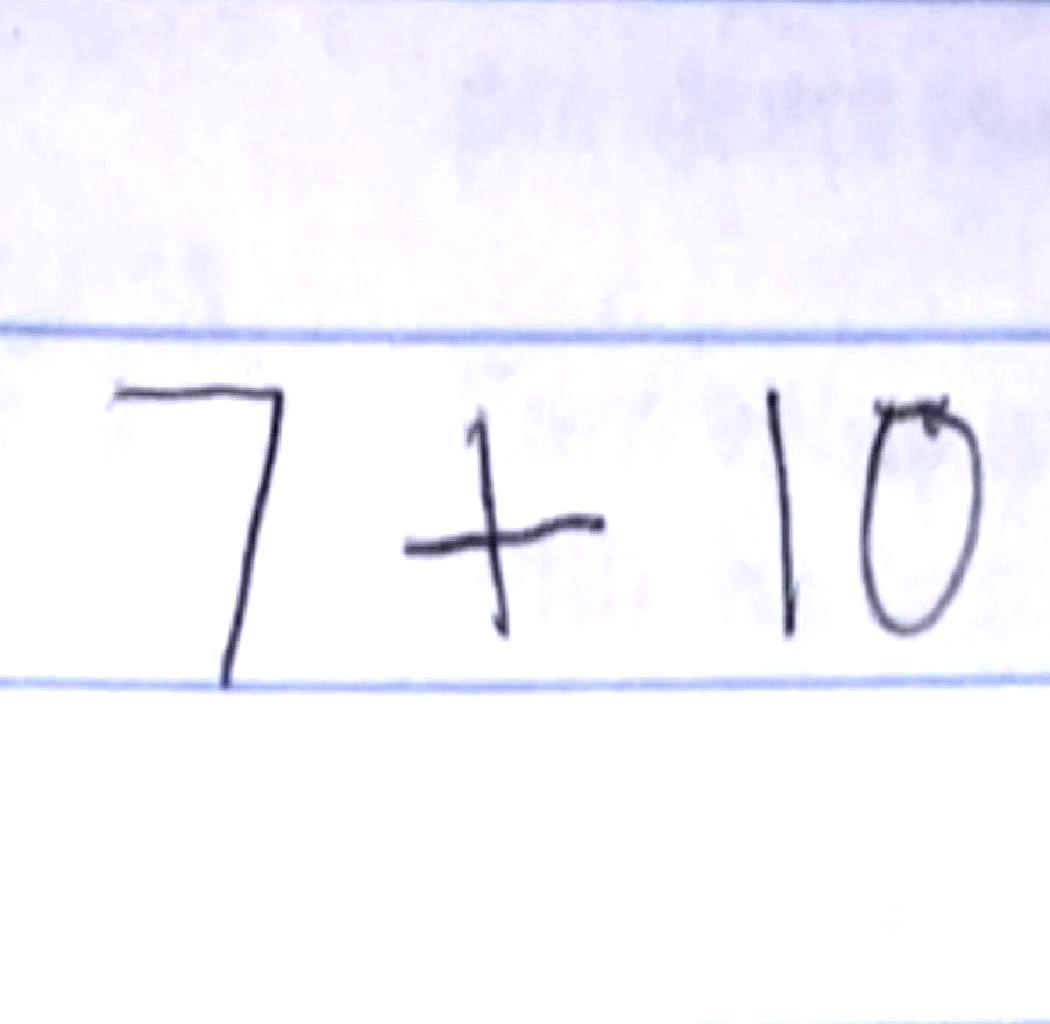 7 + 10